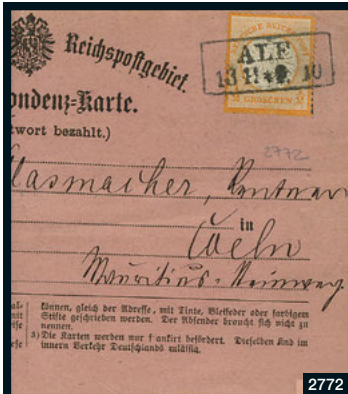 Reichspostgebiet.
ALF
GROSCHEN
ondenz-Karte.
twort bezahlt.)
2772
lasmacher, Rentner
in
Coeln
Mauritius-Steinweg
können, gleich der Adresse, mit Tinte, Bleifeder oder farbigem
Stifte geschrieben werden. Der Absender braucht sich nicht zu
nennen.
3) Die Karten werden nur frankirt befördert. Dieselben sind im
innern Verkehr Deutschlands zulässig.
2772